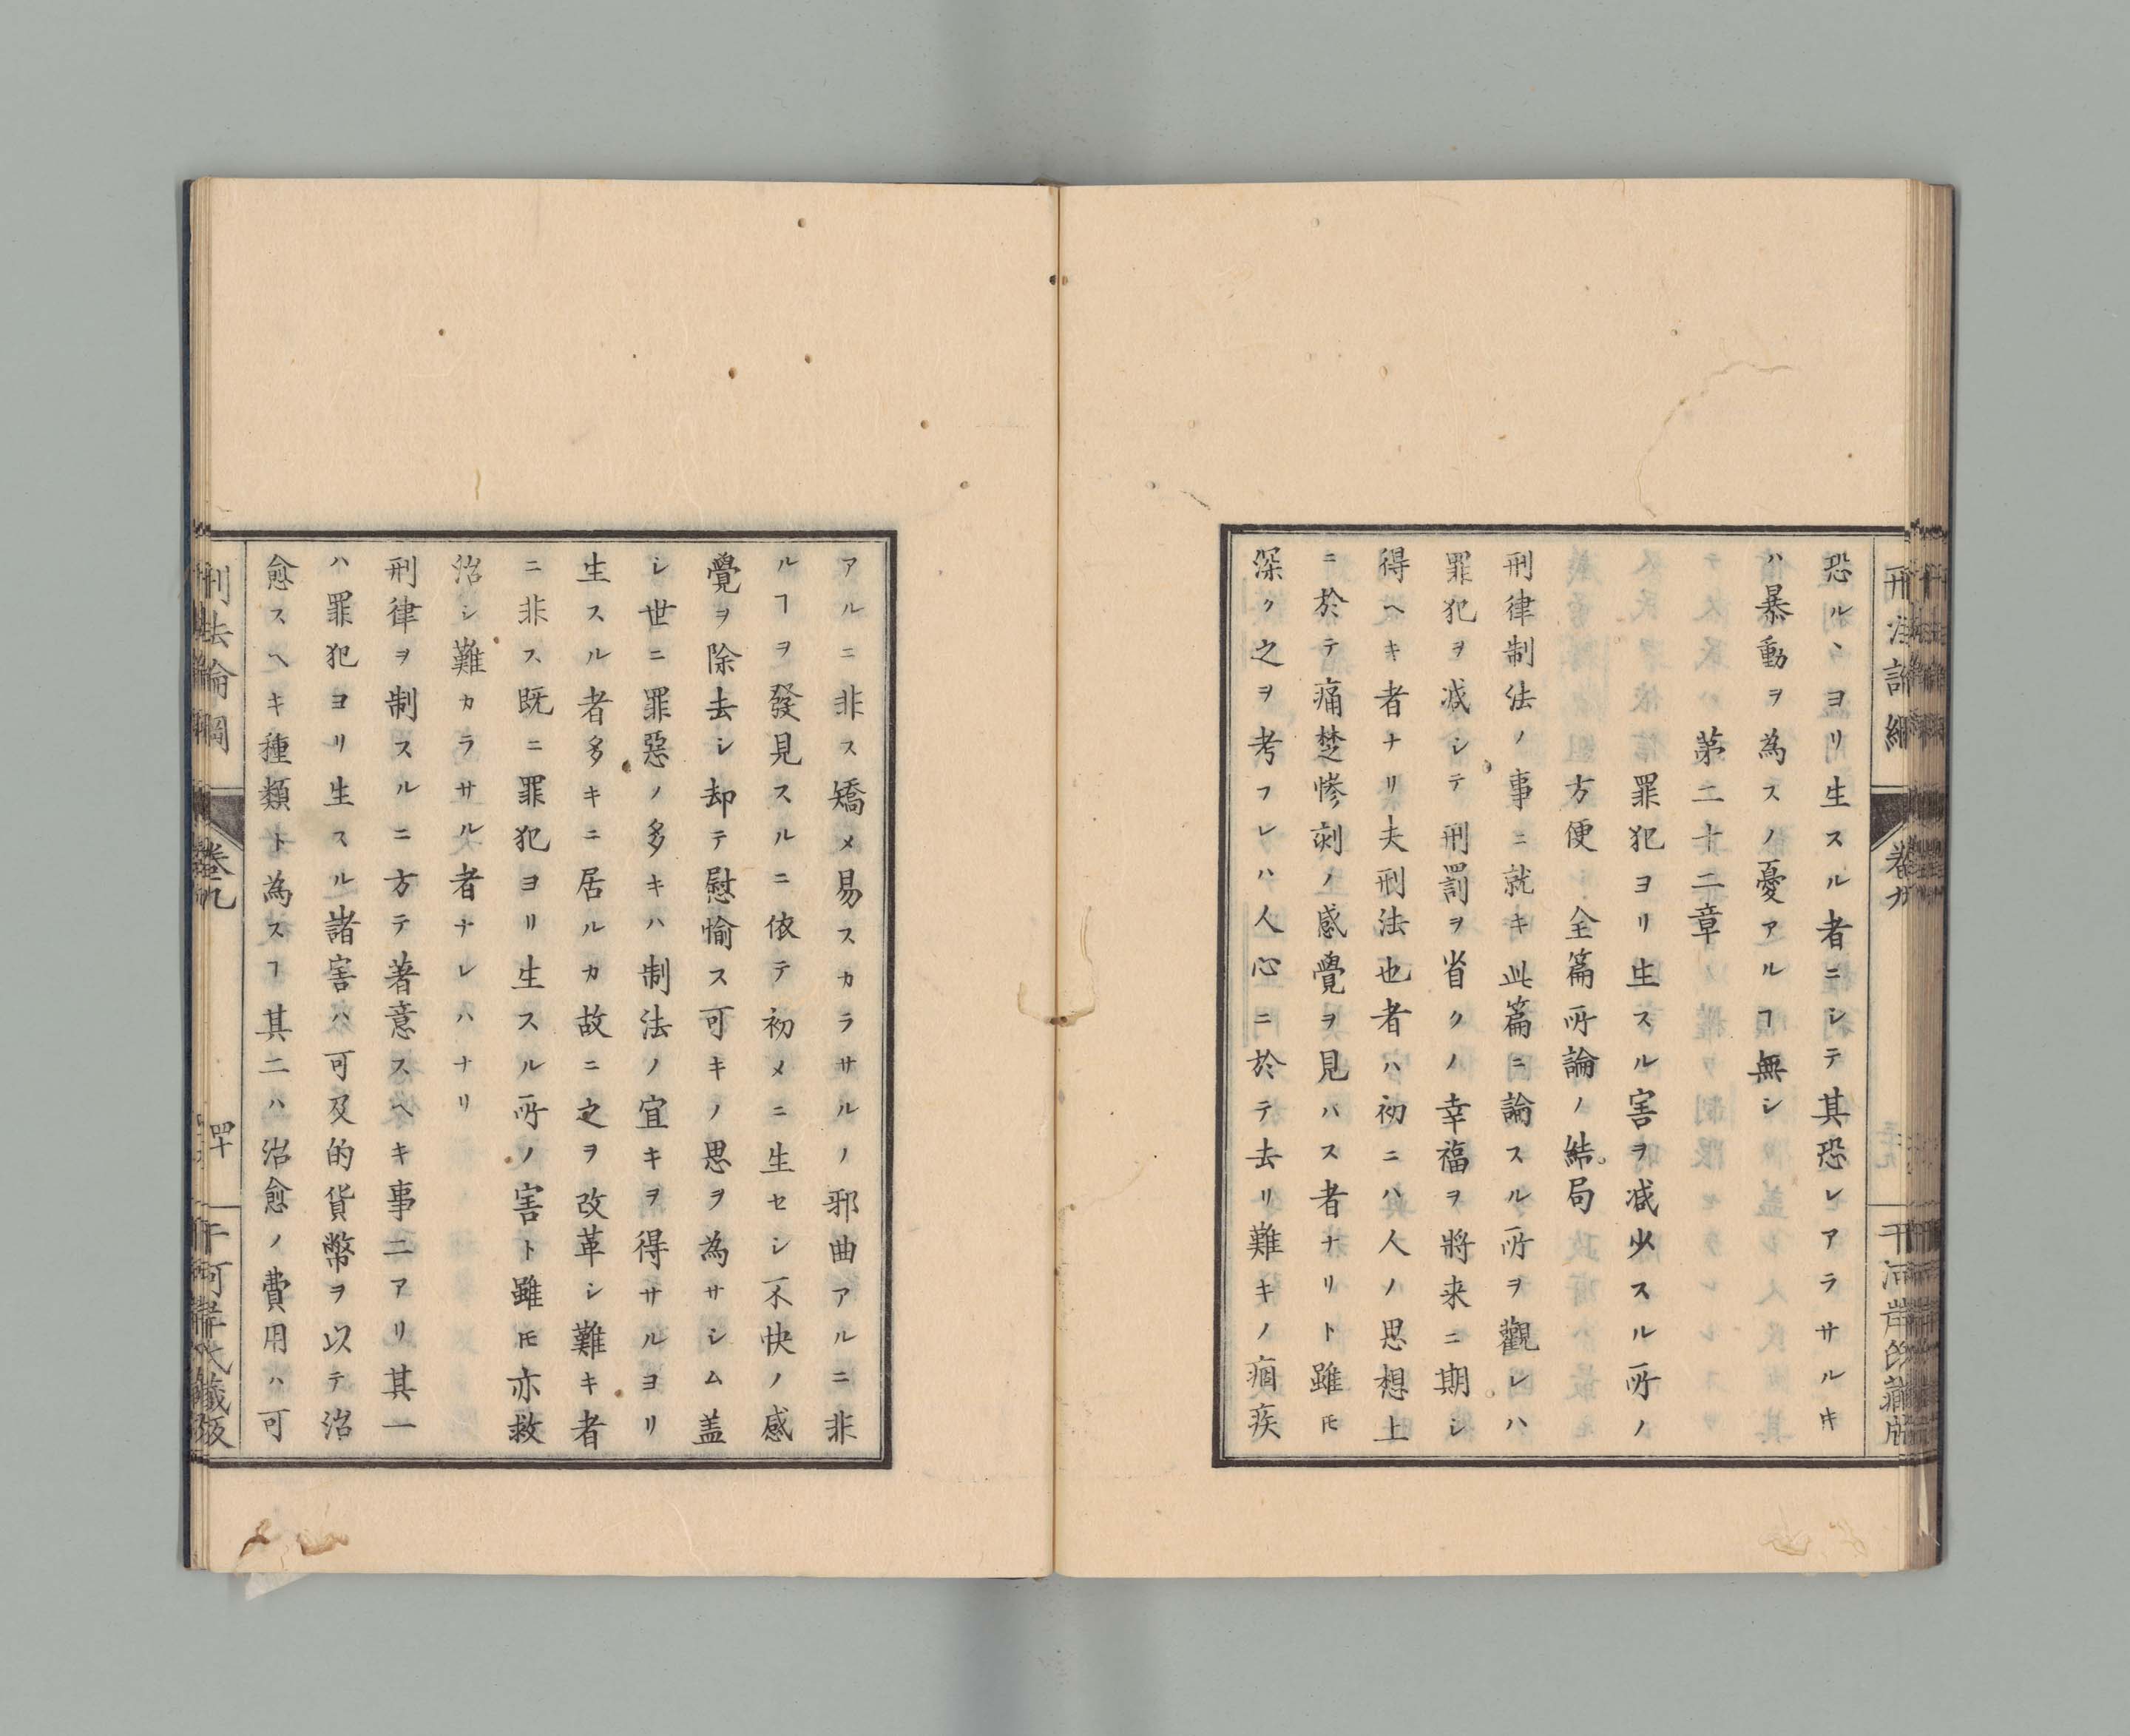 恐ルヽヨリ生スル者ニシテ其恐レアラサルキ
ハ暴動ヲ為スノ憂アルヿ無シ
第二十二章
罪犯ヨリ生スル害ヲ減少スル所ノ
方便 全篇所論ノ結局
刑律制法ノ事ニ就キ此篇ニ論スル所ヲ觀レハ
罪犯ヲ減シテ刑罰ヲ省クノ幸福ヲ將来ニ期シ
得ヘキ者ナリ夫刑法也者ハ初ニハ人ノ思想上
ニ於テ痛楚慘刻ノ感覺ヲ見ハス者ナリト雖𪜈
深ク之ヲ考フレハ人心ニ於テ去リ難キノ痼疾
アルニ非ス矯メ易スカラサルノ邪曲アルニ非
ルヿヲ發見スルニ依テ初メニ生セシ不快ノ感
覺ヲ除去シ却テ慰愉ス可キノ思ヲ為サシム盖
シ世ニ罪惡ノ多キハ制法ノ宜キヲ得サルヨリ
生スル者多キニ居ルカ故ニ之ヲ改革シ難キ者
ニ非ス既ニ罪犯ヨリ生スル所ノ害ト雖𪜈亦救
治シ難カラサル者ナレハナリ
刑律ヲ制スルニ方テ著意スヘキ事二アリ其一
ハ罪犯ヨリ生スル諸害ハ可及的貨幣ヲ以テ治
愈スヘキ種類ト為スヿ其二ハ治愈ノ費用ハ可
刑法論綱
卷九
四十
千河岸氏藏版